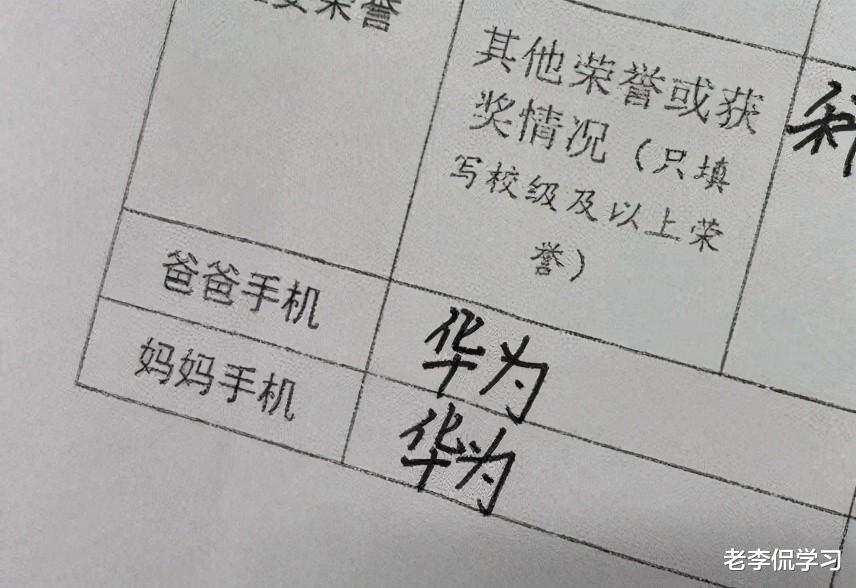 要荣誉
其他荣誉或获
奖情况（只填
写校级及以上荣
誉）
爸爸手机
华为
妈妈手机
华为
老李侃学习